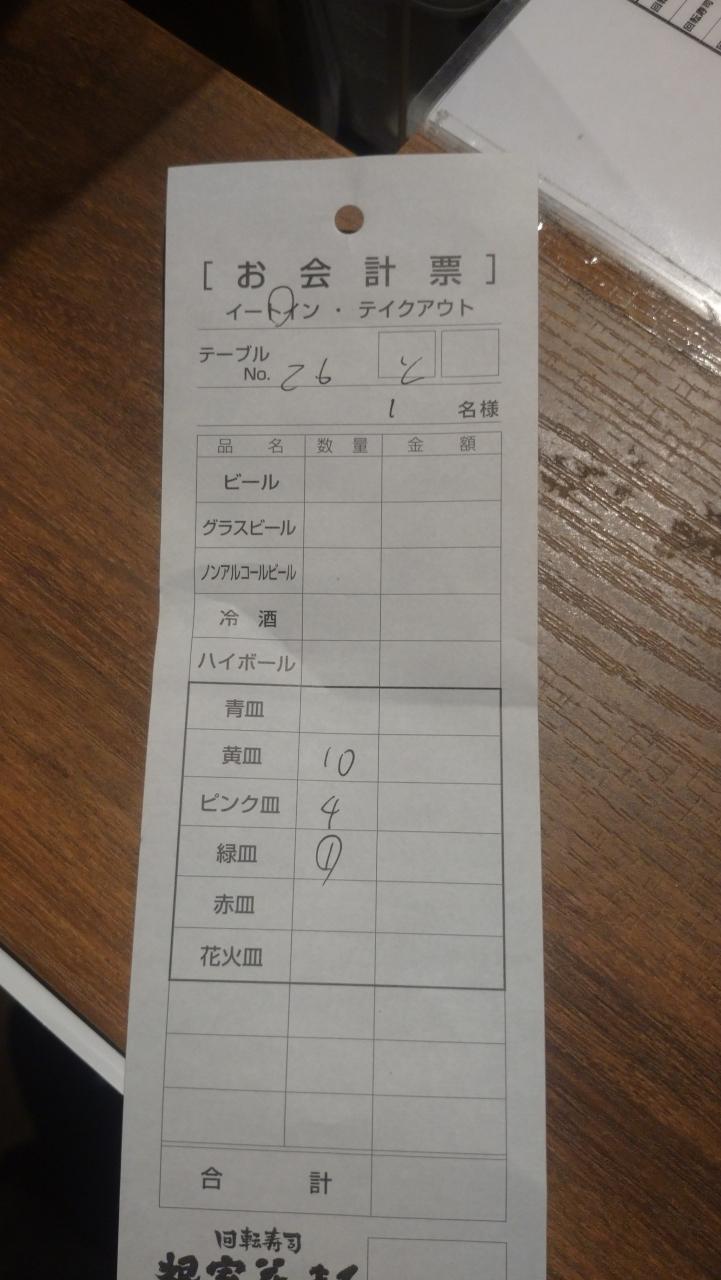 [ お 会 計 票 ]
イートイン ・ テイクアウト
テーブル
No. 26
1 名様
品 名 数 量 金 額
ビール
グラスビール
ノンアルコールビール
冷 酒
ハイボール
青皿
黄皿 10
ピンク皿 4
緑皿 ①
赤皿
花火皿
合 計
回転寿司